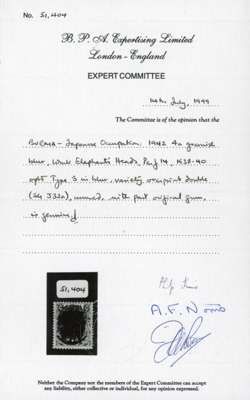 No. 51,404
B. P. A. Expertising Limited
London - England
EXPERT COMMITTEE
14th July, 1999
The Committee is of the opinion that the
Burma - Japanese Occupation 1942 4a greenish
blue, Wmk Elephants Heads, Perf 14, 1938-40
opt Type 3 in blue, variety overprint double
(SG J32a), unused, with part original gum,
is genuine
51,404
Neither the Company nor the members of the Expert Committee can accept
any liability, either collective or individual, for any opinion expressed.